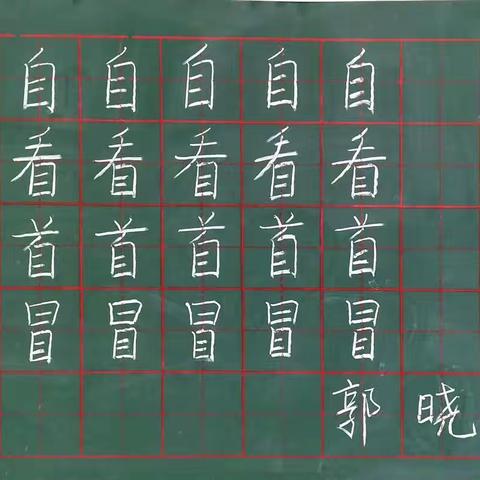 自自自自自
看看看看看
首首首首首
冒冒冒冒冒
郭晓